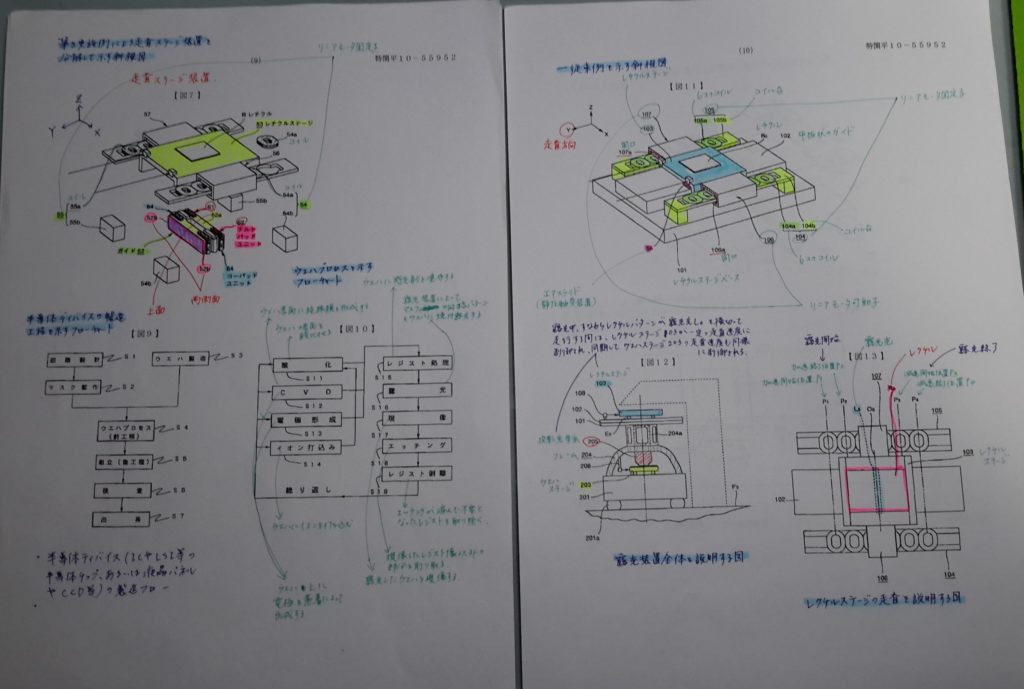 第3実施例による走査ステージ装置を
分解して示す斜視図
(9)
特開平10-55952
リニアモータ固定子
走査ステージ装置
【図7】
Z
Y
X
57
R レチクル
53 レチクルステージ
54a
コイル
56
コイル
55a
55
55b
54a
54
54b
55b
コイル
64
52a
62
チルト
パッド
ユニット
ガイド52
52b
64
ヨーパッド
ユニット
54b
上面
両側面
ウエハプロセスを示す
フローチャート
半導体デバイスの製造
工程を示すフローチャート
【図9】
回路設計
S1
ウエハ製造
S3
マスク製作
S2
ウエハプロセス
(前工程)
S4
組立(後工程)
S5
検査
S6
出荷
S7
・半導体デバイス(ICやLSI等の
半導体チップ、あるいは液晶パネル
やCCD等)の製造フロー
【図10】
ウエハの表面を
酸化させる
酸化
S11
CVD
S12
電極形成
S13
イオン打込み
S14
繰り返し
レジスト処理
S15
露光
S16
現像
S17
エッチング
S18
レジスト剥離
S19
ウエハにイオンを打ち込む
エッチングが済んで不要と
なったレジストを取り除く
露光したウエハを現像する
ウエハ上に
電極を蒸着によって
形成する
(10)
特開平10-55952
一従来例を示す斜視図
レチクルステージ
【図11】
Z
Y
X
走査方向
107
103
開口
107a
6コのコイル
105
105a 105b
コイル台
リニアモータ固定子
レチクル
R0
102
平板状のガイド
104a 104b
コイル台
104
6コのコイル
106
106a
開口
101
レチクルステージベース
エアスライド
(静圧軸受装置)
リニアモータ可動子
露光中、すなわちレチクルパターンが露光光L0を横切って
走行する間は、レチクルステージ103が一定の走査速度に
制御され、同期してウエハステージ203の走査速度も同様
に制御される。
【図12】
レチクルステージ
103
108
102
101
E0
204a
投影光学系
205
フレーム
204
206
ウエハステージ
203
201
201a
F0
露光装置全体を説明する図
【図13】
露光開始
露光光
レチクル
露光終了
加速終了位置
加速開始位置
減速開始位置
減速終了位置
P1
P2
L0
O0
107
R0
P3
P4
105
103
レチクル
ステージ
102
106
104
レチクルステージの走査を説明する図